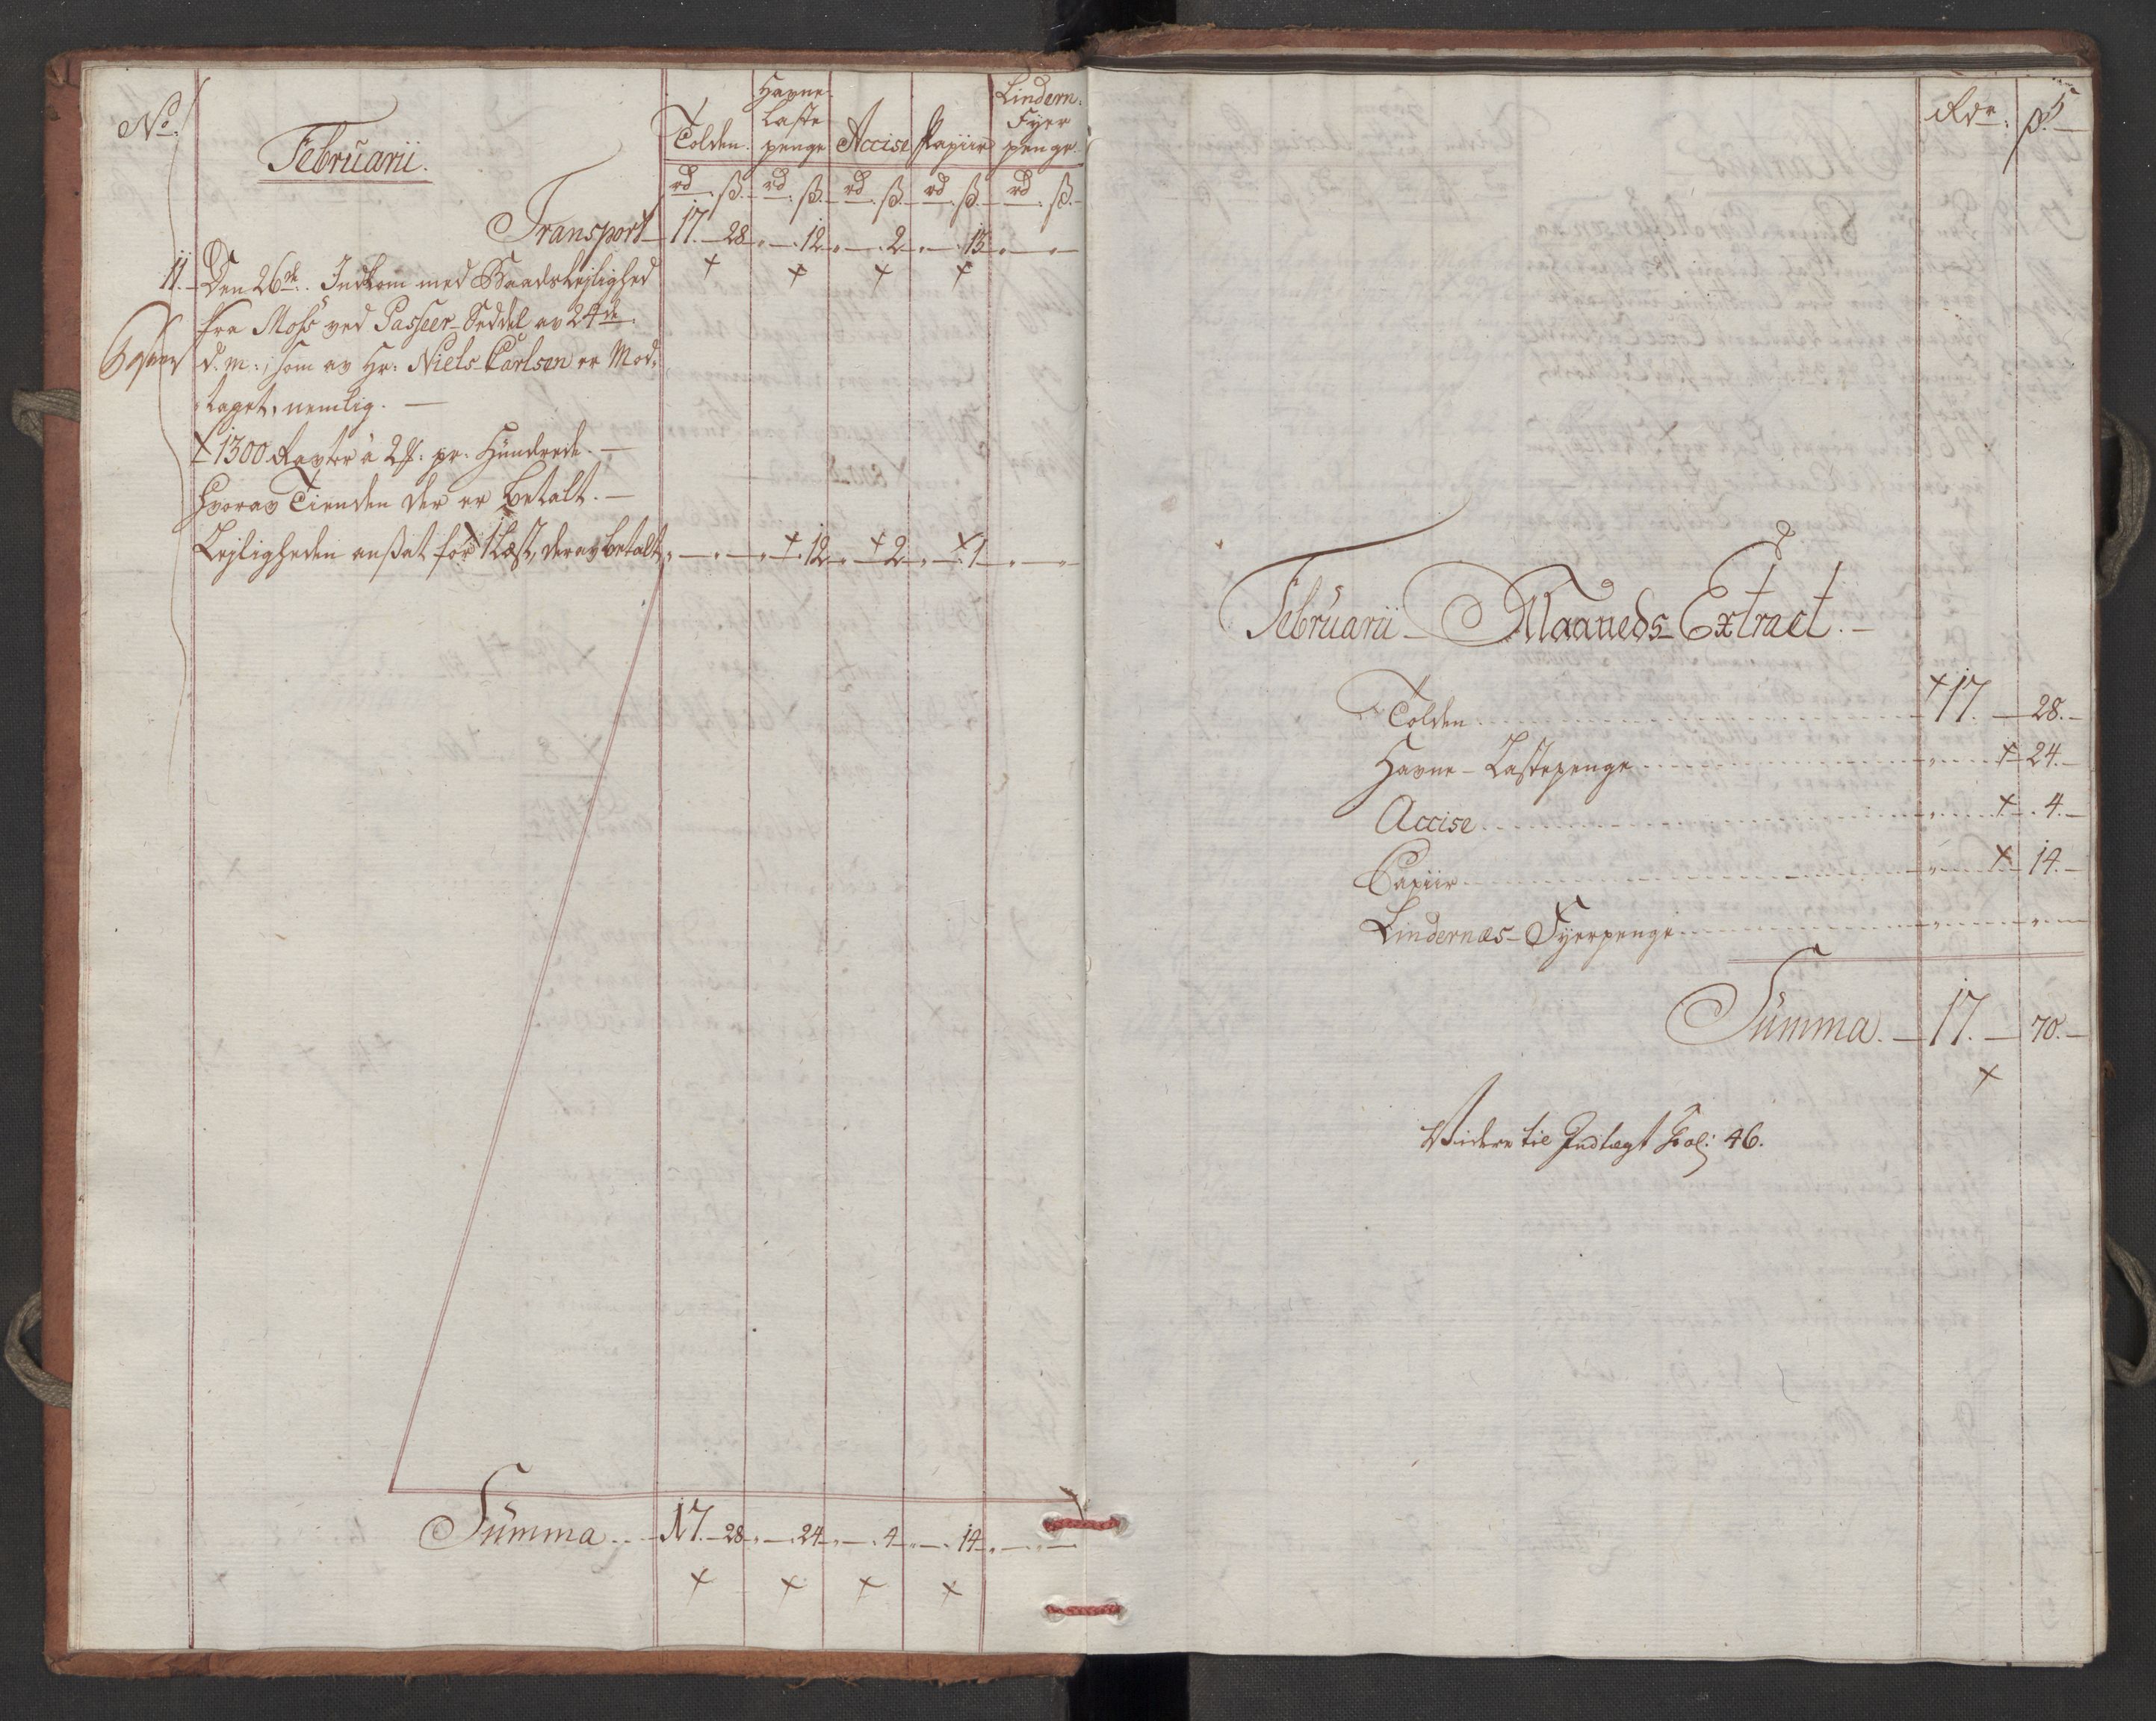 No.
Februarii.
Tolden. Havne Laste penge Accise Papiir Lindern: Fyer penge
rd. ß. rd. ß. rd. ß. rd. ß. rd. ß.
Transport 17. 28 „ 12 „ 2 „ 13 „ „
11. Den 26de. Indkom med Baadsleylighed
fra Moss ved Passeer-Seddel av 24de.
d. m:, som av Hr: Niels Carlsen er Mod-
taget, nemlig.
1300 Ravter à 2 ß: pr. Hundrede.
Hvorav Tienden der er betalt.
Leyligheden ansat for 1 Læst, derav betalt „ „ „ 12 „ 2 „ 1 „ „
Summa 17. 28 „ 24 „ 4 „ 14 „ „
Rdr. ß. 5
Februarii Maaneds Extract.
Tolden 17. 28.
Havne-Lastepenge „ 24.
Accise „ 4.
Papiir „ 14.
Lindernæs-Fyerpenge „ „
Summa. 17. 70.
Videre til Indtægt Fol: 46.